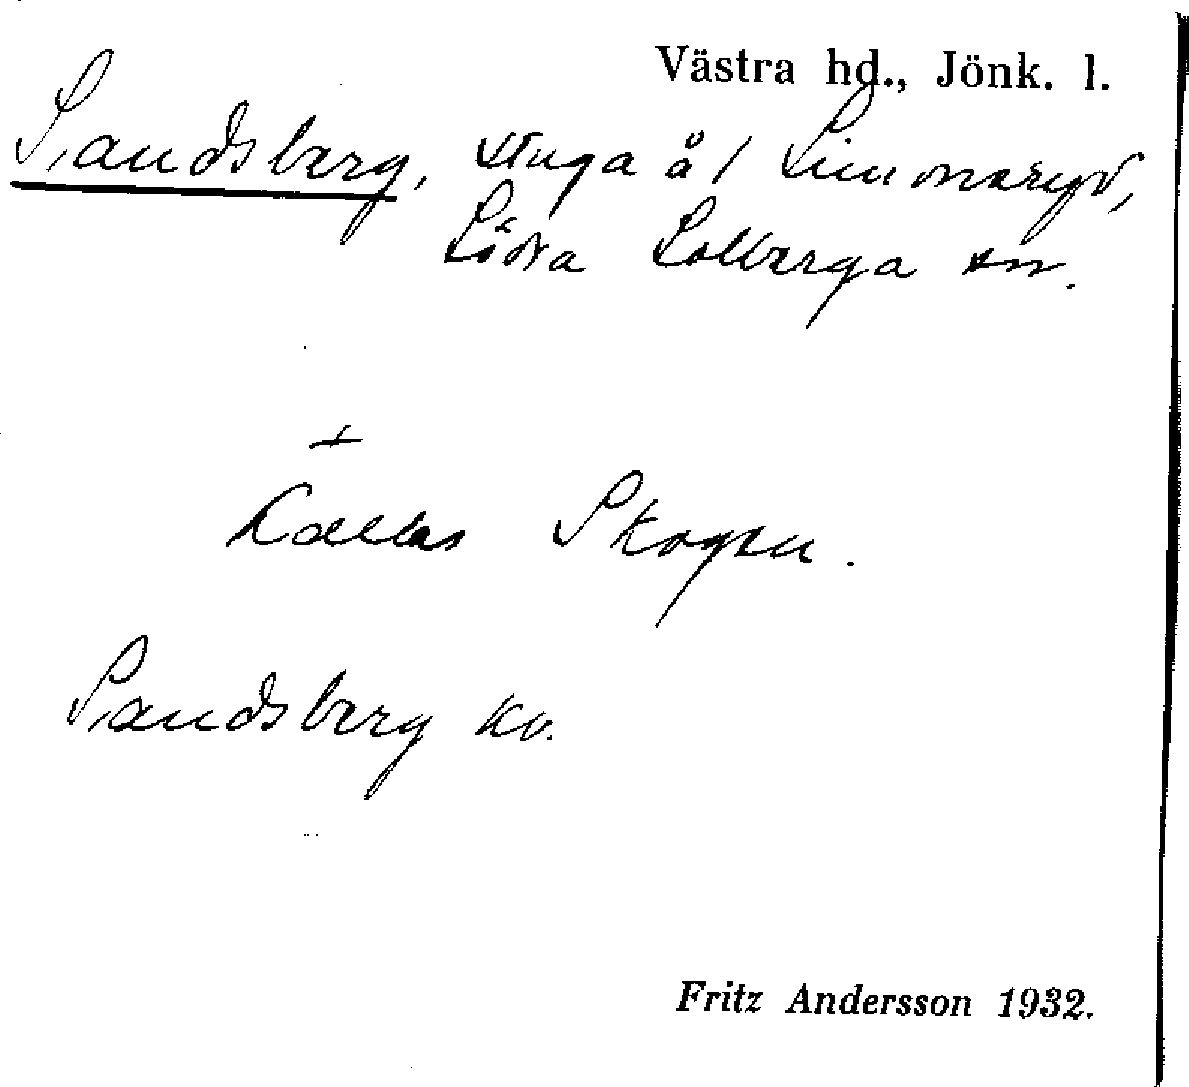 Västra hd., Jönk. l.
Sandsberg, stuga å / Simonaryd,
Södra Solberga sn.
+
Kallas Skogen.
Sandsberg kv.
Fritz Andersson 1932.